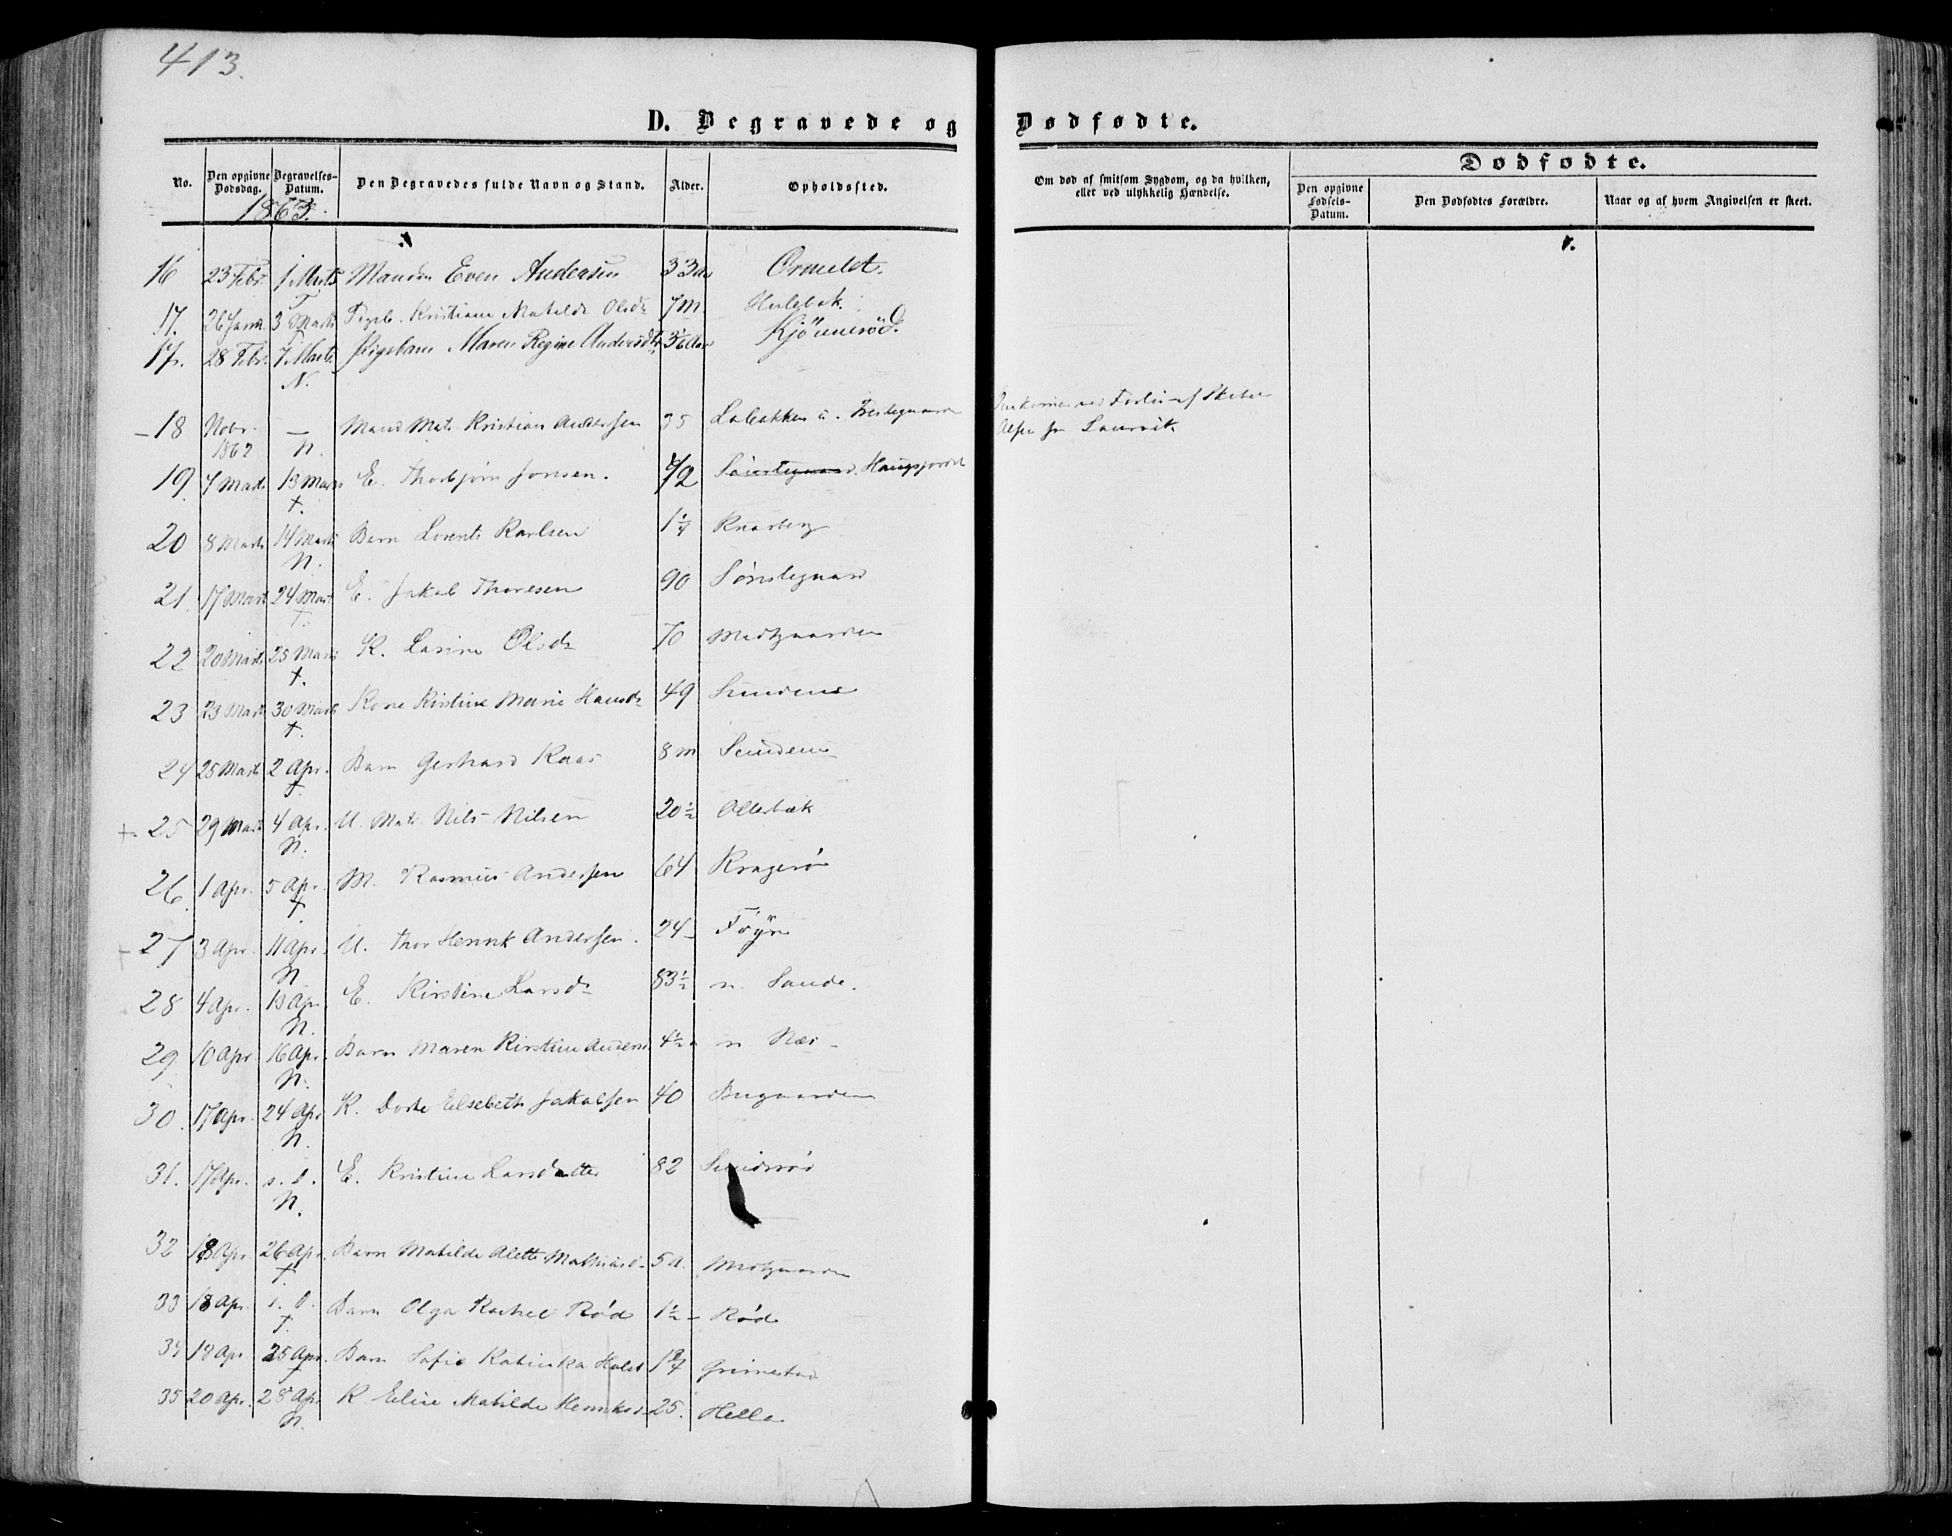 413.
D. Begravede og Dødfødte.
No. Den opgivne Dødsdag. Begravelses-Datum. Den Begravedes fulde Navn og Stand. Alder. Opholdssted. Om død af smitsom Sygdom, og da hvilken, eller ved ulykkelig Hændelse. Dødfødte. Den opgivne Fødsels-Datum. Den Dødfødtes Forældre. Naar og af hvem Angivelsen er skeet.
1863.
16 23 Febr. 1 Marts Manden Even Andersen 33 Aar Ormelet.
T
17. 26 Janr. 3 Marts Pigeb. Kristiane Matilde Olsdr 7 M. Hulebak.
T
17. 28 Febr. 7 Marts Pigebarn Maren Regine Andersdtr Kjønnerød.
N.
18 Nobr. 1862 — Mand Mat. Kristian Andersen 35 Labakken
N. Alsen fra Laurvik
19. 7 Marts 13 Marts E. Thorbjørn Jonsen. 72 Sønstegaard. Haugsjordet
†.
20 8 Marts 14 Marts Barn Lorents Karlsen 1¼ Knarberg
N.
21. 17 Marts 24 Marts E. Jakob Thoresen 90 Sønstegaard
T.
22 20 Marts 25 Marts K. Larine Olsdr 70 Midtgaarden
†.
23 23 Marts 30 Marts Kone Kirstine Marie Hansdr 49 Sundene
†.
24 25 Marts 2 Apr. Barn Gerhard Kaas 8 m Sundene
†
+ 25 29 Marts 4 Apr. U. Mat. Nils Nilsen 20½ Ollebæk
N.
26. 1 Apr. 5 Apr. M. Rasmus Andersen 64 Kragerø
†.
27 3 Apr. 11 Apr. U. Thor Henrik Andersen. 24 Føyn
N
28 4 Apr. 13 Apr. E. Kirstine Larsdr 83½ n. Sande.
N.
29. 10 Apr. 16 Apr. Barn Maren Kirstine Anders 4½ n Næs
N.
30. 17 Apr. 24 Apr. K. Dorte Elsebeth Jakobsen 40 Bugaarden
N.
31. 17 Apr. s. D. E. Kristine Larsdatter 82 Smidsrød
N.
32 18 Apr. 26 Apr. Barn Matilde Alette Mathiasd 5 A. Midtgaarden
†
33 18 Apr. s. D. Barn Olga Rachel Rød 1½ Rød
†.
34 18 Apr. 25 Apr. Barn Sofie Katinka Holst Grimestad
†
35 20 Apr. 28 Apr. K Elise Matilde Henriksd 25. Hella
N.